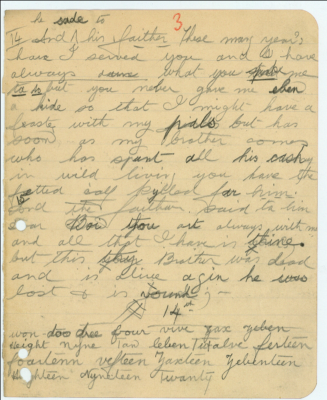 he sade to
3
14 And his faither These may year's
have I served you and I have
always done what you me
to do but you never gave me eben
a kide so that I might have a
feaste with my pals but has
soon as my brother comes
who has spant all his cash
in wild living you have the
fatted calf kylled for him.
15 And the faither said to him
son thou art always with me
and all that I have is thine.
but this Brother was dead
and is Alive agin he was
lost & is vound;-
14
won doo dree four vive zax zeben
Height Nyne Tan leben Twalve ferteen
foarteenn vefteen Zaxteen Zebenteen
Heighteen Nyneteen Twanty